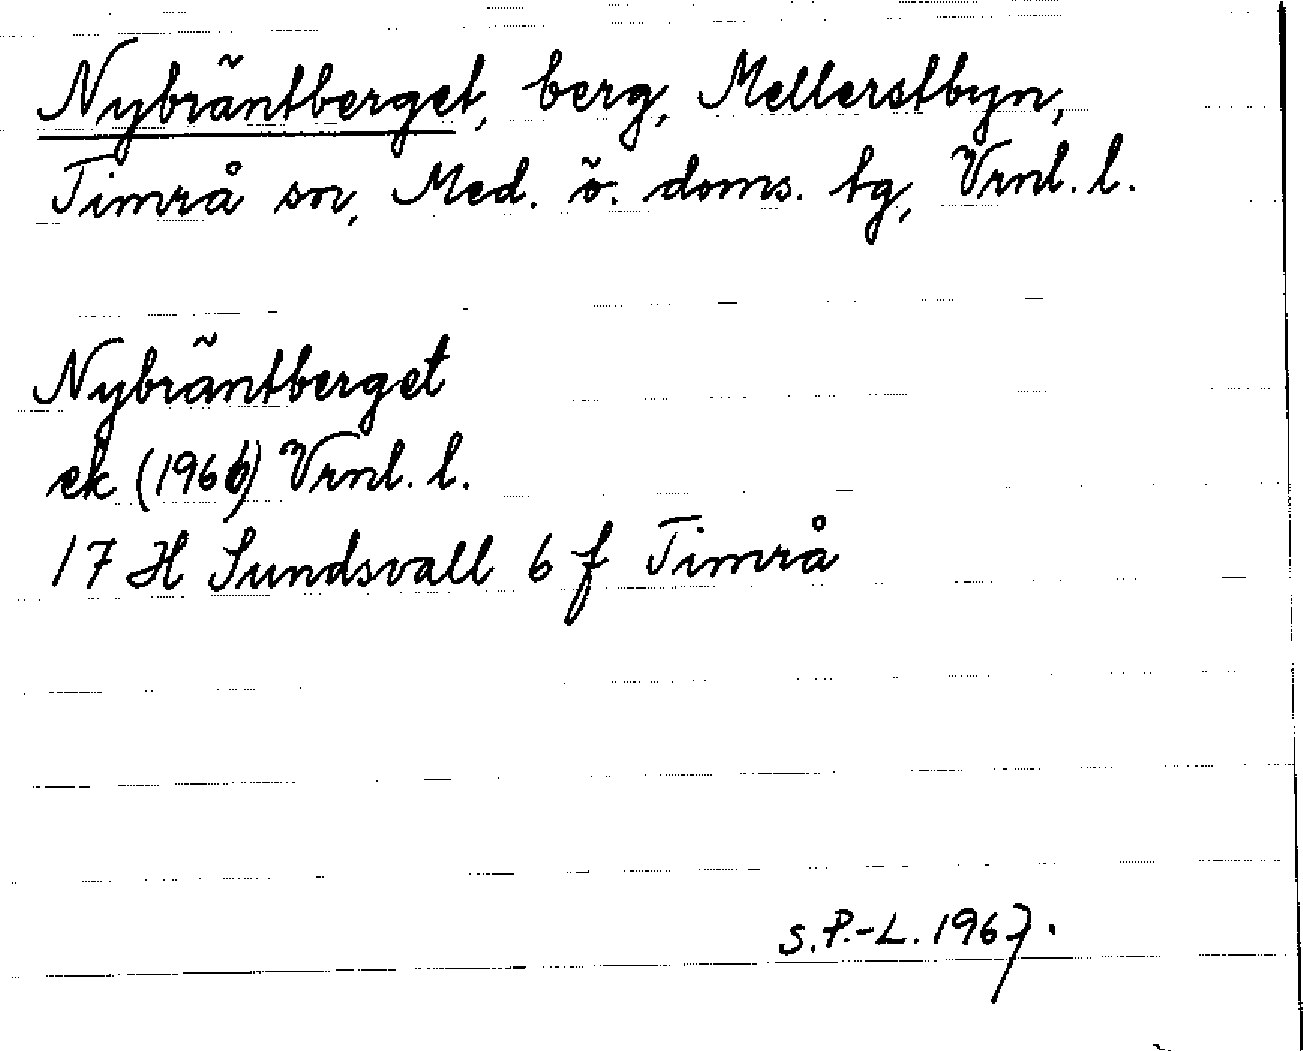 Nybräntberget, berg, Mellerstbyn,
Timrå sn, Med. ö. doms. tg, Vrnl. l.
Nybräntberget
ek (1966) Vrnl. l.
17 H Sundsvall 6 f Timrå
S.P.-L. 1967.